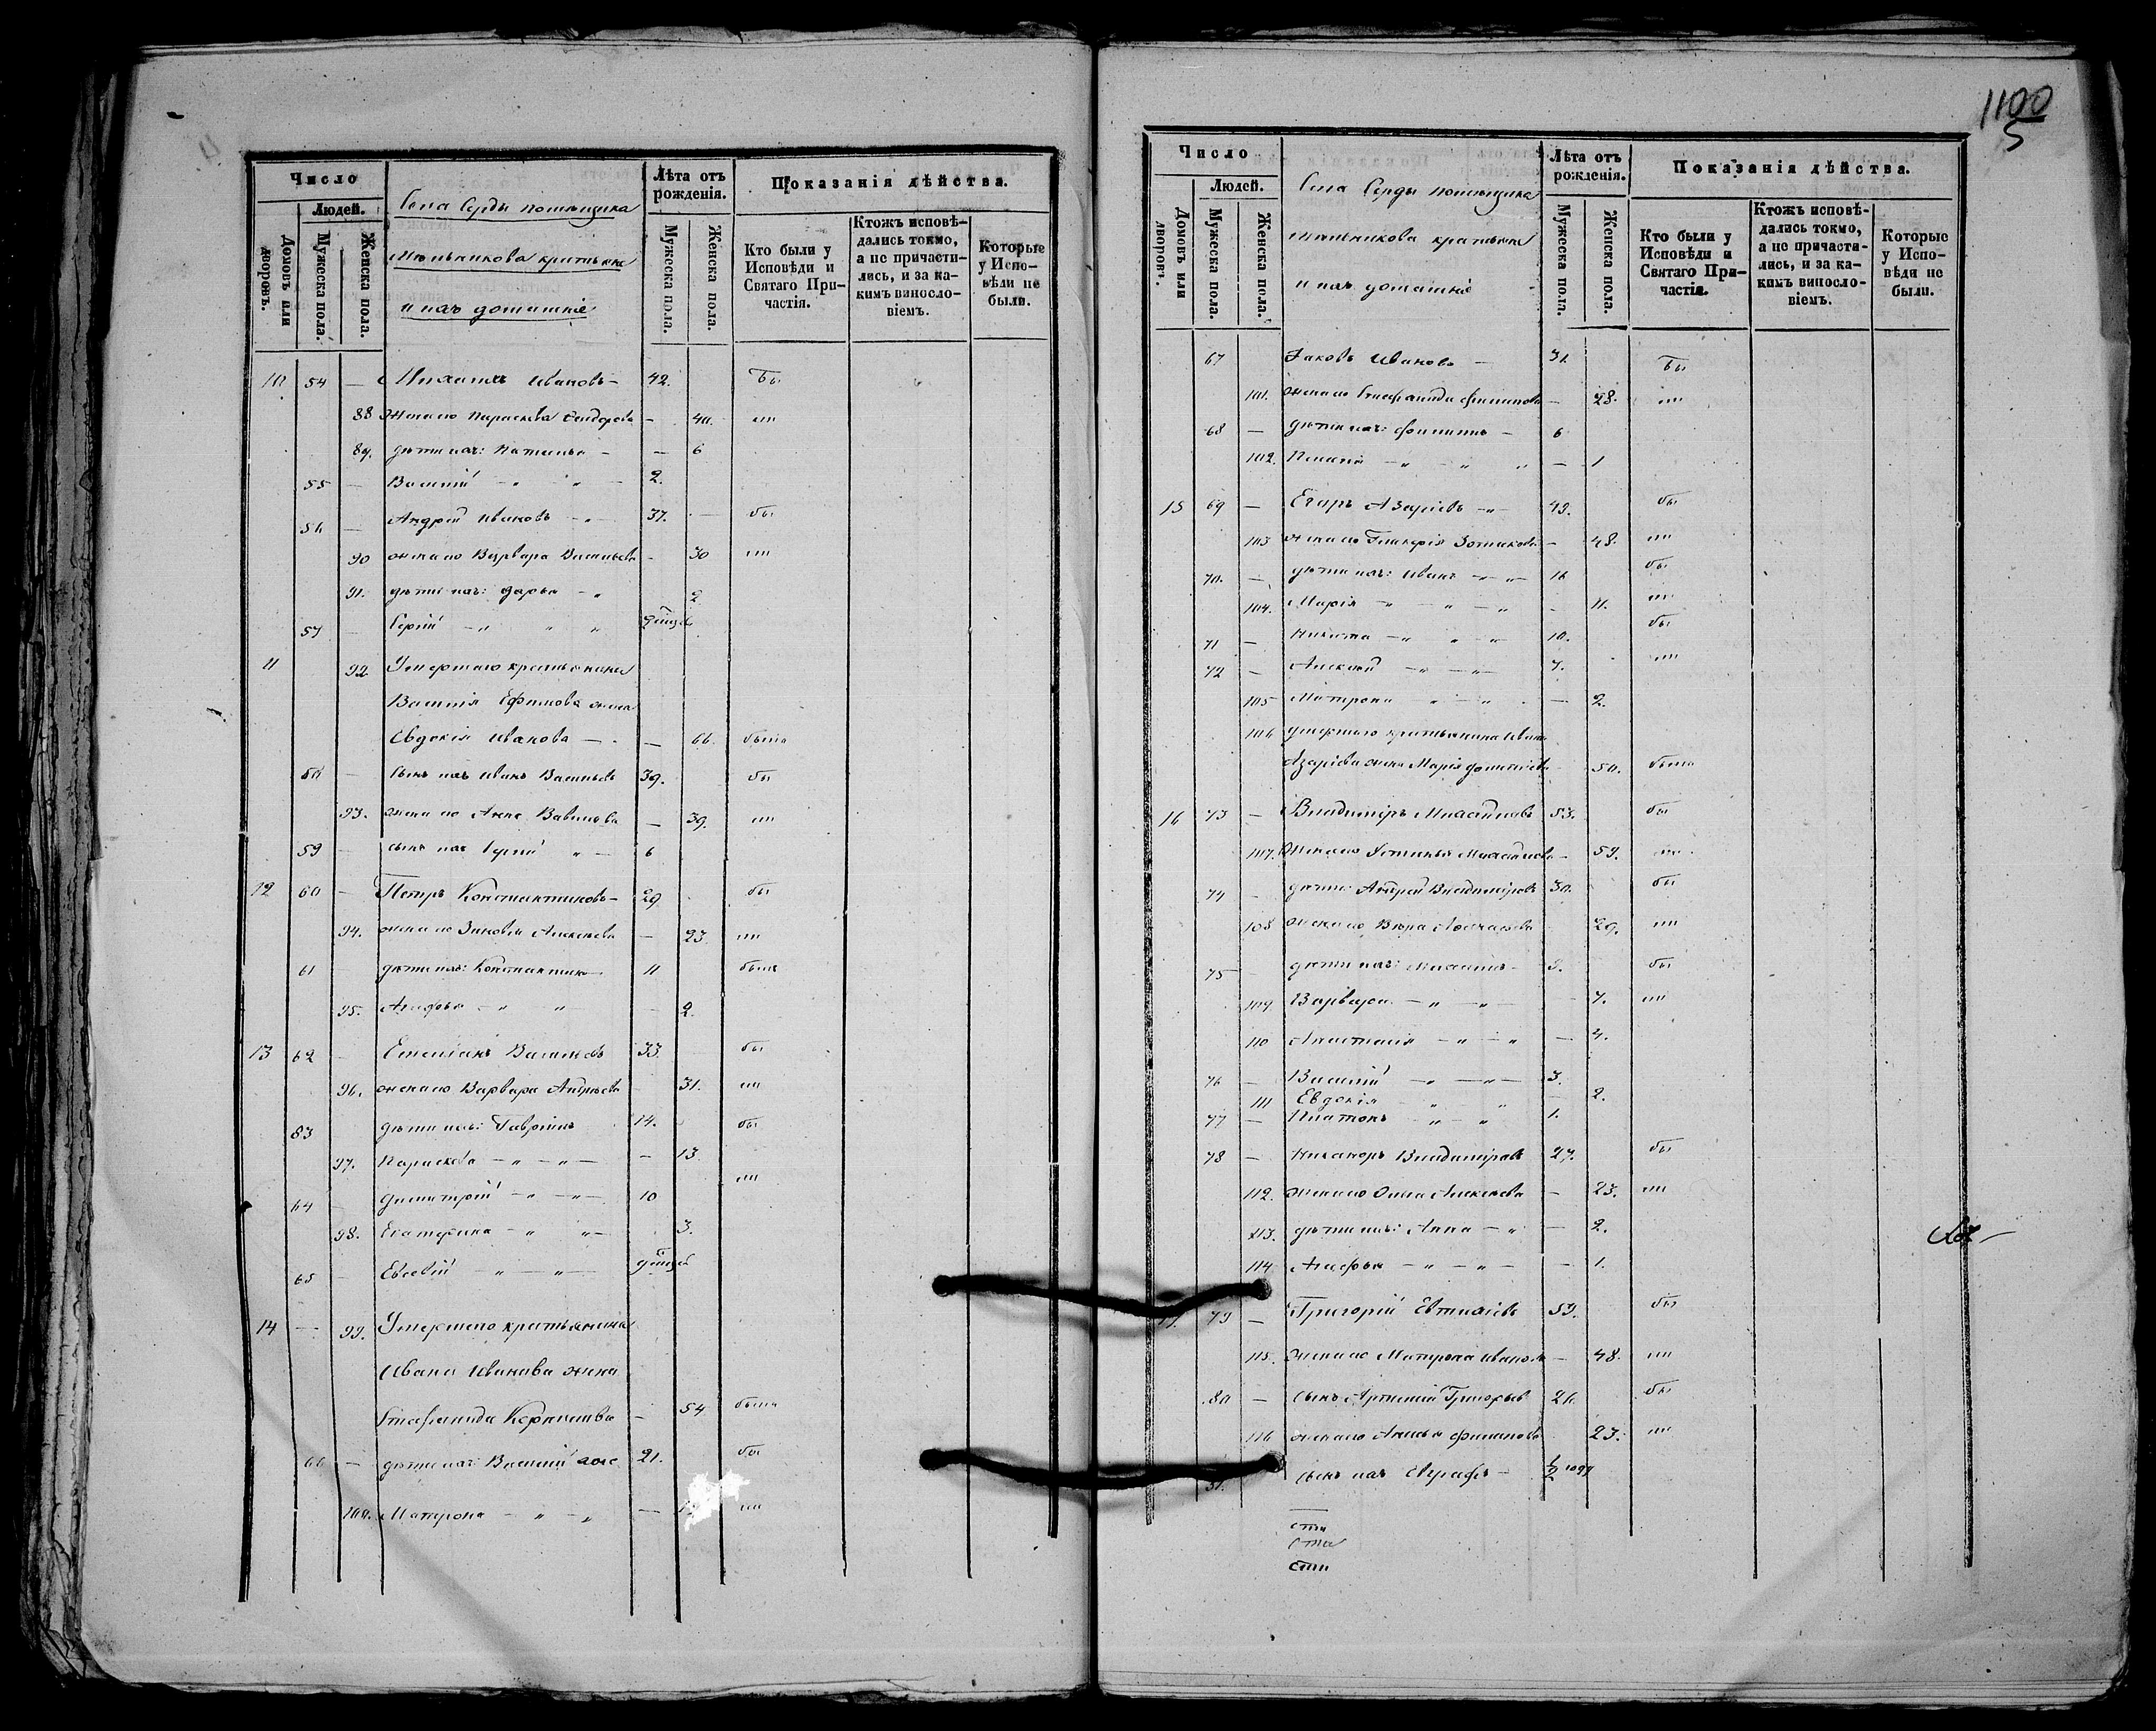 Число
Людей.
Домовъ или дворовъ.
Мужеска пола.
Женска пола.
Села Серды помѣщика
Мельникова крестьяне
и ихъ домашніе
Лѣта отъ рожденія.
Мужеска пола.
Женска пола.
Показанія дѣйства.
Кто были у Исповѣди и Святаго Причастія.
Ктожъ исповѣдались токмо, а не причастились, и за какимъ винословіемъ.
Которые у Исповѣди не были.
10 54 — Михаилъ Ивановъ — 42. бы
88 жена его Параскева Сидорова — 40. ли
89. дѣти ихъ: Наталья — — 6
55 — Василій — " " — 2.
56 — Андрей Ивановъ — " — 37. — бы
90 жена его Варвара Васильева — 30 ли
91. дѣти ихъ: Дарья — " 2
57 — Сергій — " " "
11 92 Умершаго крестьянина
Василія Ефимова жена
Евдокія Иванова — — 66. была
58 — сынъ ихъ Иванъ Васильевъ 39. бы
93. жена его Анна Вавилова — 39. ли
59 — сынъ ихъ Сергій " — 6
12 60 — Петръ Константиновъ — 29 бы
94. жена его Зиновія Алексѣева — 23 ли
61 дѣти ихъ: Константинъ 11 былъ
95. Агафья — " " — 2.
13 62 — Емеліанъ Васильевъ 33. бы
96. жена его Варвара Андреева 31. ли
83 дѣти ихъ: Гавріилъ 14. бы
97. Параскева — " — " — — 13
64 Димитрій — " — " — 10 ли
98. Екатерина — " " — 3.
65 — Евсевій — " — " —
14 — 99. Умершаго крестьянина
Ивана Иванова жена
Стефанида Корнилова — 54 была
66 — дѣти ихъ: Василій 21. бы
100. Матрона — " — " — ли
1100
5
Число
Людей.
Домовъ или дворовъ.
Мужеска пола.
Женска пола.
Села Серды помѣщика
Мельникова крестьяне
и ихъ домашніе
Лѣта отъ рожденія.
Мужеска пола.
Женска пола.
Показанія дѣйства.
Кто были у Исповѣди и Святаго Причастія.
Ктожъ исповѣдались токмо, а не причастились, и за какимъ винословіемъ.
Которые у Исповѣди не были.
67 Іаковъ Ивановъ — 31. бы
101. жена его Стефанида Филипова — 28. ли
68 — дѣти ихъ: Филиппъ — 6
102. Пелагія — " — " " — 1
15 69 — Егоръ Азаріевъ — " — 49. бы
103 жена его Гликерія — 48. ли
70. — дѣти ихъ: Иванъ — " — 16 бы
104. Марія — " — " — " — 11. ли
71 — Никита — " " " 10. бы
72 — Алексѣй — " — " — 7. ли
105 Матрона " — " — 2.
106 Умершаго крестьянина Ивана
Азаріева жена Марія 50. была
16 73 — Владиміръ Михайловъ 53. бы
107. Жена его Устинья Михайлова — 59. ли
74 — дѣти: Андрей Владиміровъ 30. бы
108 жена его Вѣра 29. ли
75 — дѣти ихъ: Михаилъ — 9. бы
109 Варвара — " — " — 7. ли
110 Анастасія — " — " — 4.
76 — Василій — " — " — 3.
111 Евдокія — " — " — 2.
77 — Платонъ — " — " 1.
78 — Никаноръ Владиміровъ 27. бы
112. жена его Ольга Алексѣева — 23. ли
113. дѣти ихъ: Анна — " — 2.
114 Агафья — " — " — — 1.
17. 79 — Григорій Евтихіевъ 59. бы
115. жена его Матрона Иванова — 48. ли
80 — сынъ Артемій Григорьевъ 26. бы
116 жена его Анисья Филипова 23. ли
81. сынъ ихъ Евграфъ — 1/2